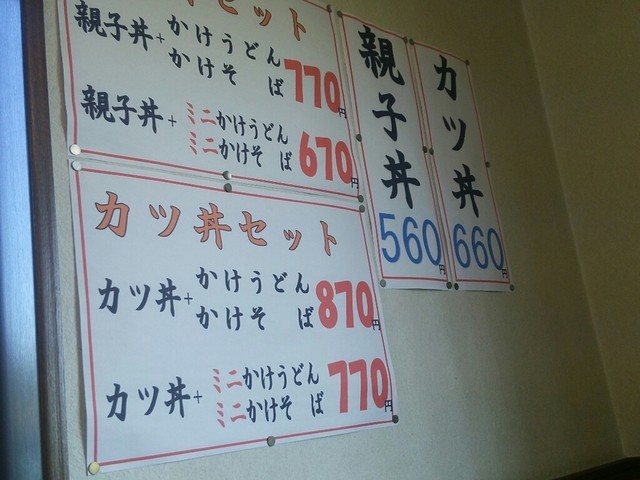 セット
親子丼+かけうどん
かけそば770円
親子丼+ミニかけうどん
ミニかけそば670円
カツ丼セット
カツ丼+かけうどん
かけそば870円
カツ丼+ミニかけうどん
ミニかけそば770円
親子丼560円
カツ丼660円